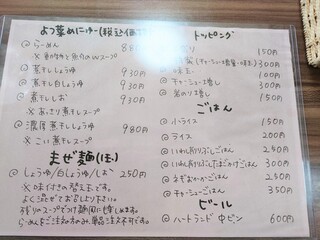 よつ葉めにゅー(税込価格)
@らーめん
※動物と魚介のWスープ
@煮干ししょうゆ 930円
@煮干し白しょうゆ 930円
@煮干ししお 930円
※あっさり煮干スープ
@濃厚煮干しょうゆ 980円
※こい煮干スープ
まぜ麺(1玉)
@しょうゆ/白しょうゆ/しお 250円
※味付きの替え玉です。
よく混ぜてお召し上り下さい。
残りのスープでつけ麺風にも楽しめます。
らーめんをご注文の方のみ、単品注文不可です。
トッピング
150円
300円
味玉 100円
@チャーシュー増し 300円
@岩のり増し 150円
ごはん
@小ライス 150円
@ライス 200円
250円
300円
@ねぎおかかごはん 250円
@チャーシューごはん 350円
ビール
@ハートランド中ビン 600円